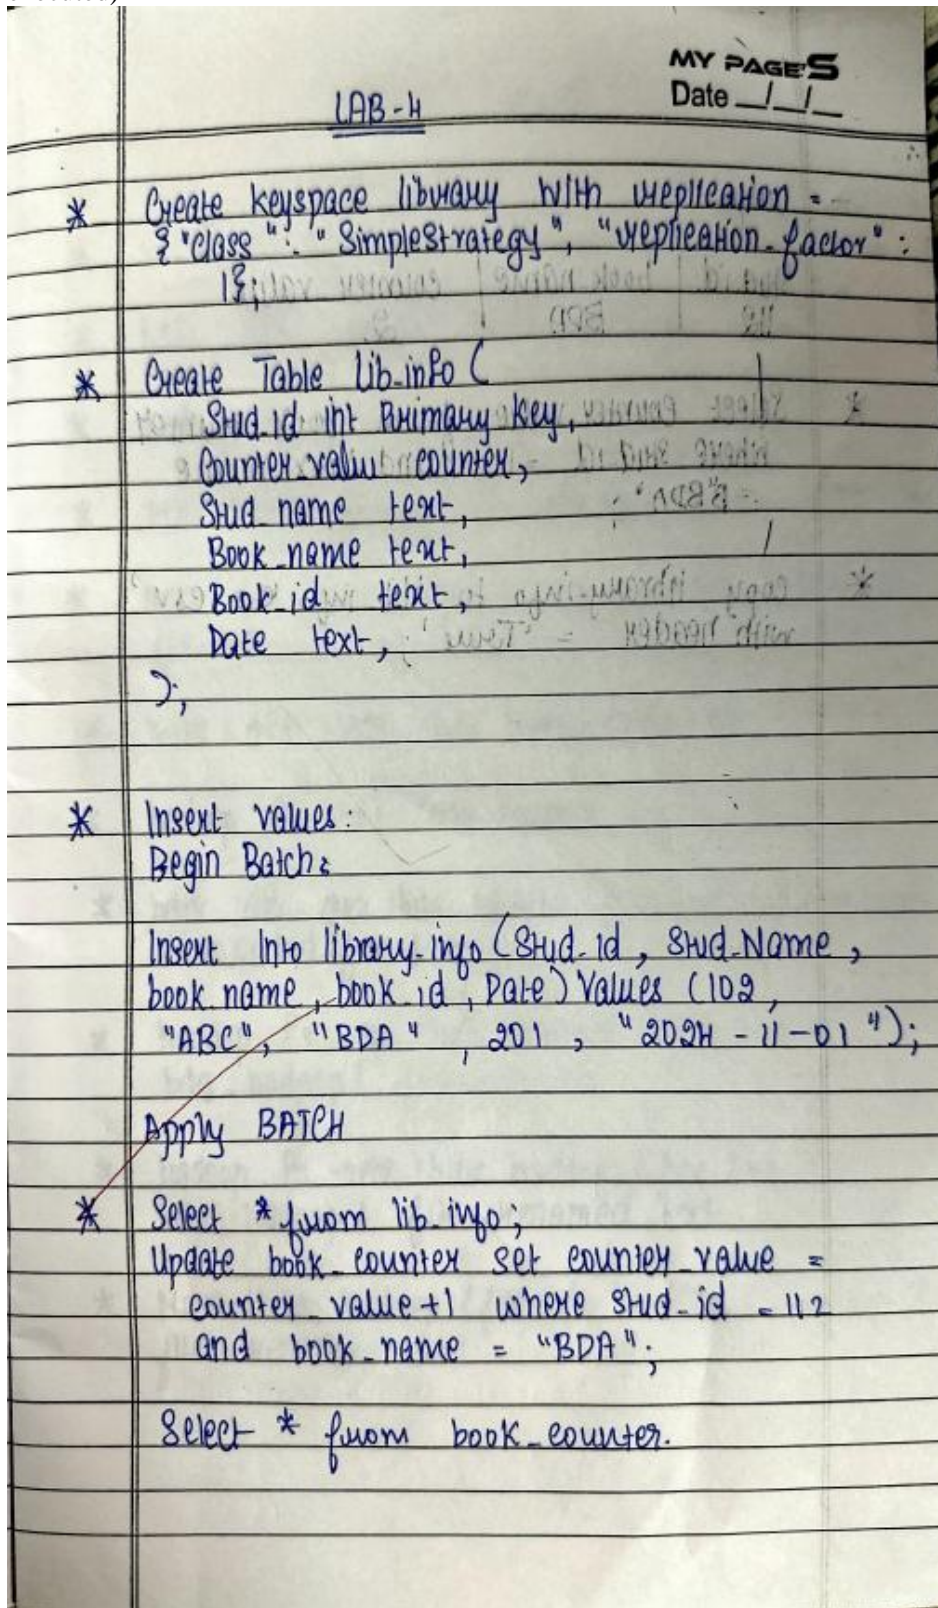 MY PAGES
Date __/__/__
LAB-4
* Create keyspace library with replication =
{"class": "SimpleStrategy", "replication_factor":
1};
* Create Table lib_info (
Stud_id int Primary key,
Counter_value counter,
Stud_name text,
Book_name text,
Book_id text,
Date text,
);
* Insert values:
Begin Batch:
Insert Into library_info (Stud_id, Stud_Name,
book_name, book_id, Date) Values (102,
"ABC", "BDA", 201, "2024-11-01");
Apply BATCH
* Select * from lib_info;
Update book_counter set counter_value =
counter_value+1 where stud_id = 112
and book_name = "BDA";
Select * from book_counter.